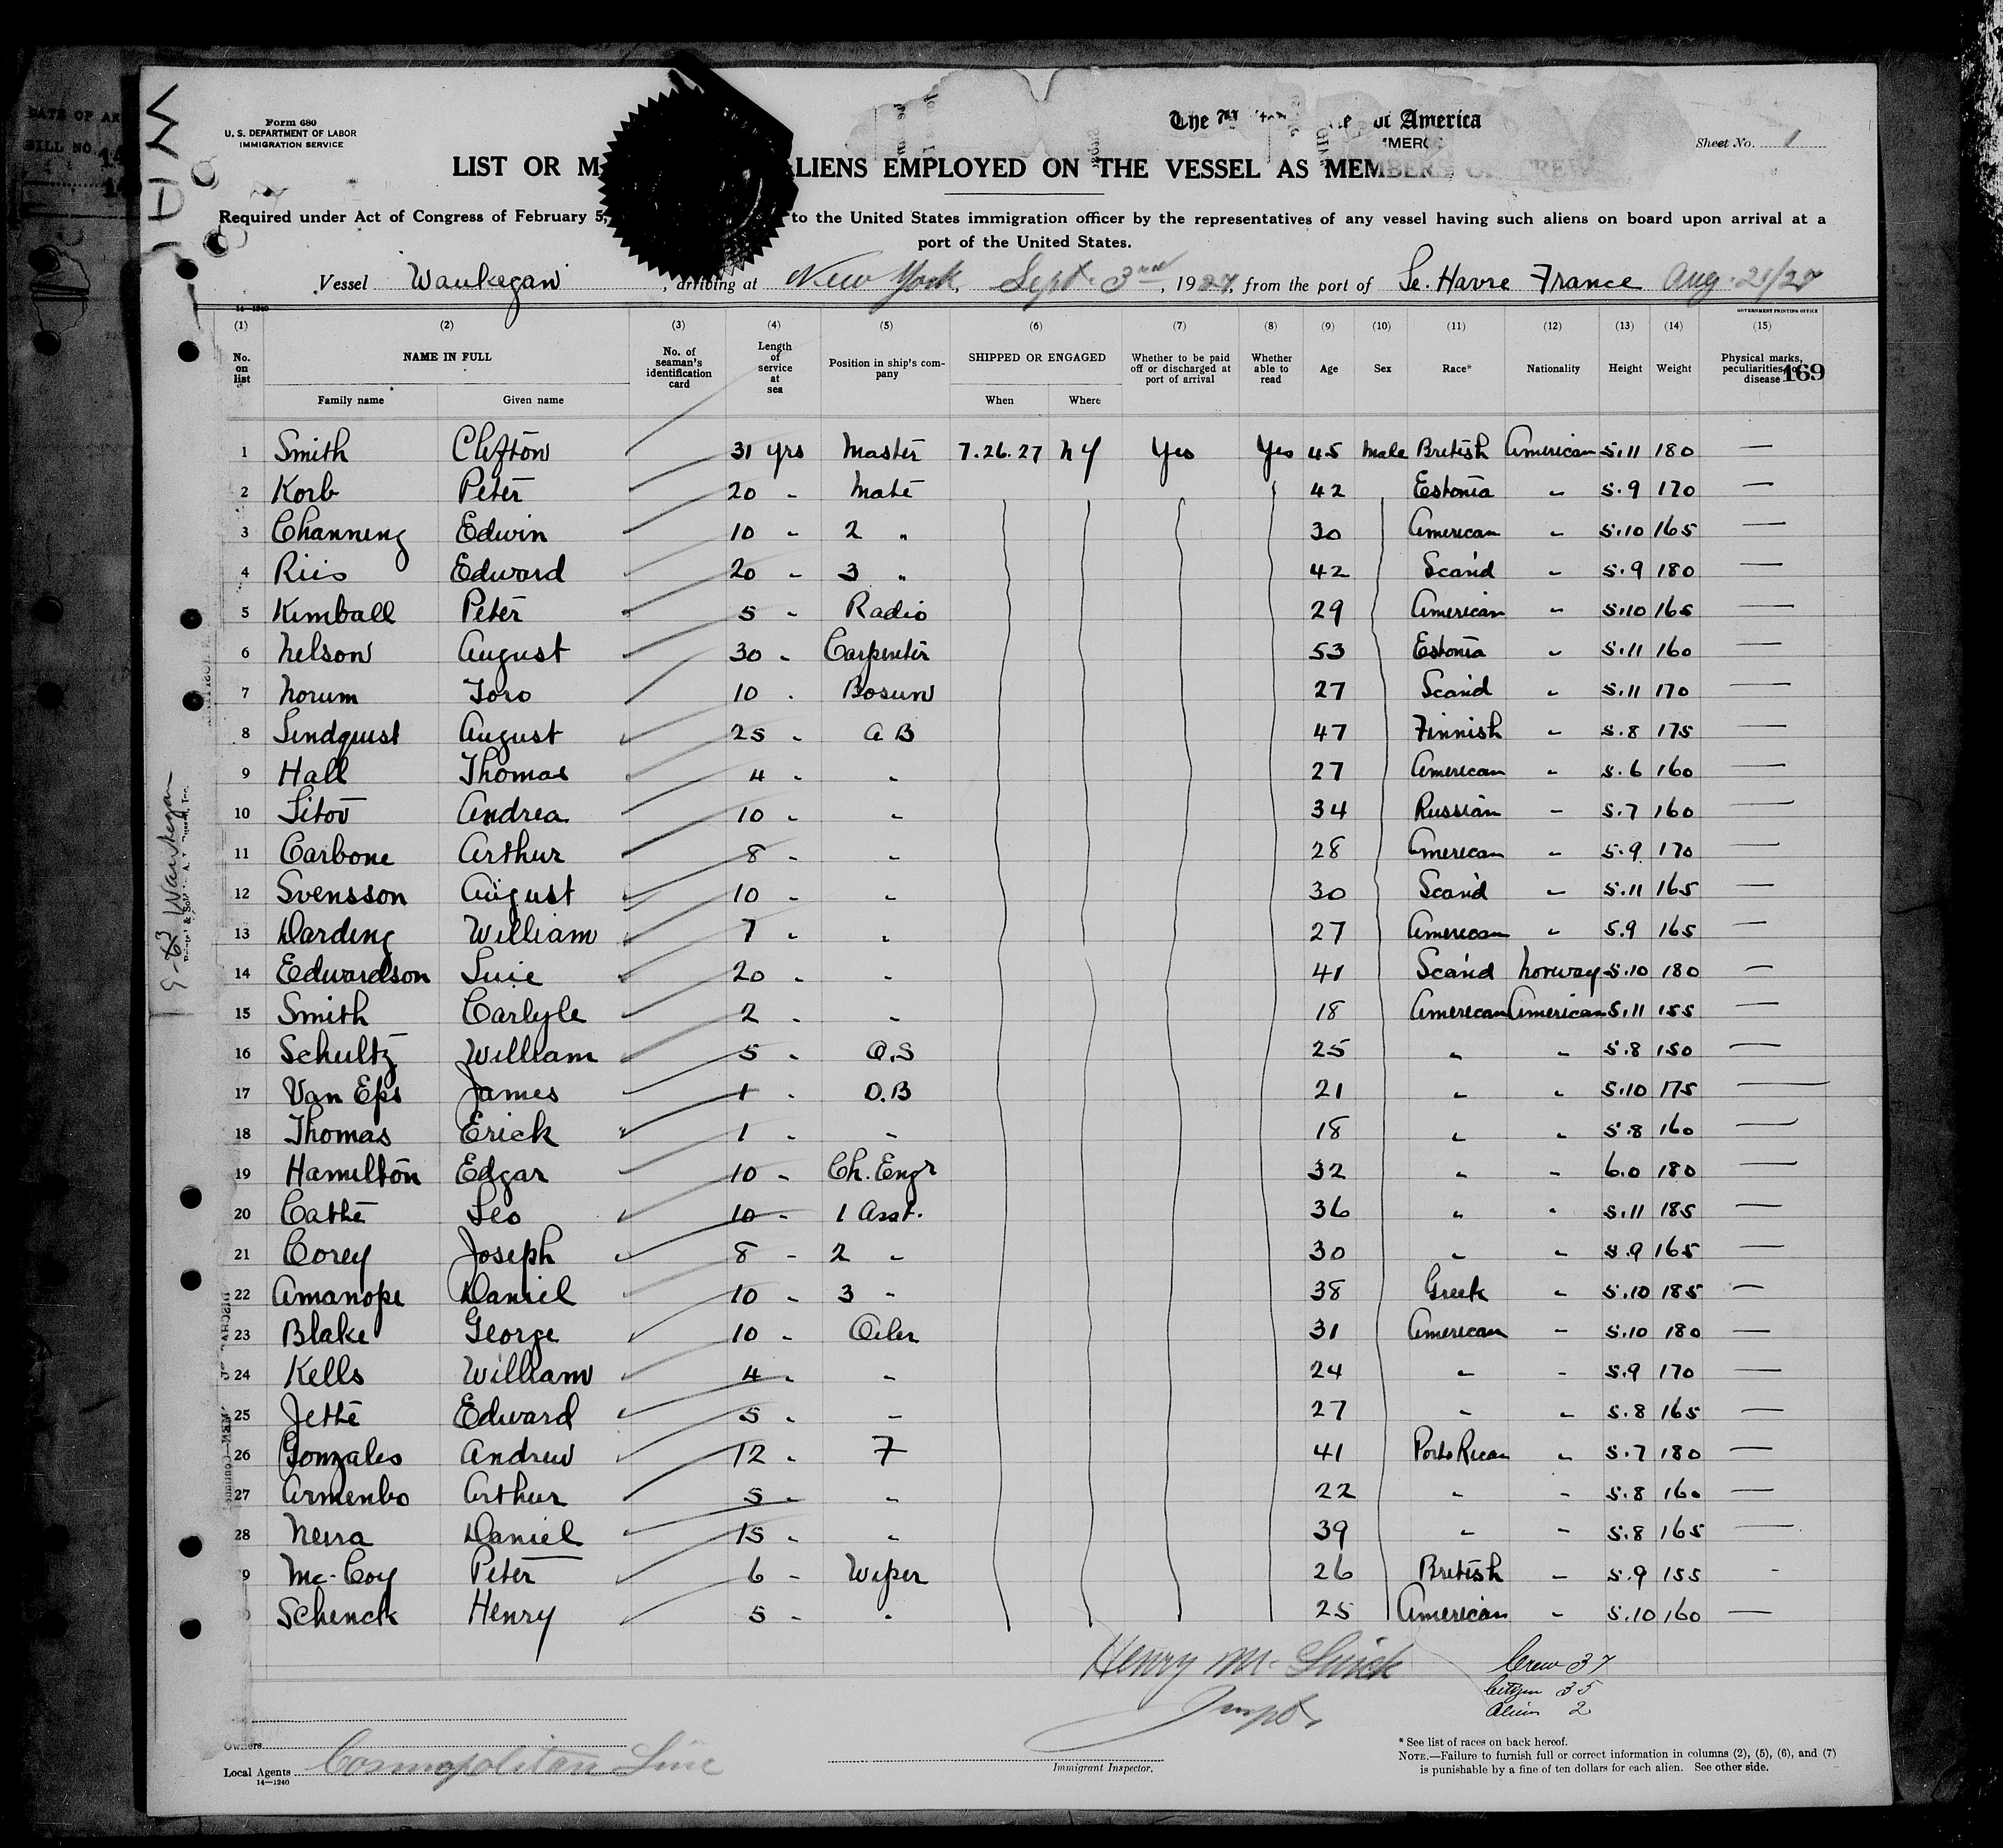 DATE OF AR
BILL NO.
Form 680
U. S. DEPARTMENT OF LABOR
IMMIGRATION SERVICE
The of America
Sheet No. 1
LIST OR M ALIENS EMPLOYED ON THE VESSEL AS MEMBERS OF CREW
Required under Act of Congress of February 5, to the United States immigration officer by the representatives of any vessel having such aliens on board upon arrival at a
port of the United States.
Vessel Waukegan, arriving at New York, Sept. 3rd, 1927, from the port of Le. Havre France Aug. 21/27
14—1240
GOVERNMENT PRINTING OFFICE
(1) (2) (3) (4) (5) (6) (7) (8) (9) (10) (11) (12) (13) (14) (15)
No. on list NAME IN FULL Family name Given name No. of seaman's identification card Length of service at sea Position in ship's company SHIPPED OR ENGAGED When Where Whether to be paid off or discharged at port of arrival Whether able to read Age Sex Race* Nationality Height Weight Physical marks, peculiarities, or disease 169
1 Smith Clifton 31 yrs Master 7.26.27 NY Yes Yes 45 Male British American 5.11 180 —
2 Korb Peter 20 " Mate 42 Estonia " 5.9 170 —
3 Channing Edwin 10 " 2 " 30 American " 5.10 165 —
4 Riis Edward 20 " 3 " 42 Scand " 5.9 180 —
5 Kimball Peter 5 " Radio 29 American " 5.10 165 —
6 Nelson August 30 " Carpenter 53 Estonia " 5.11 160 —
7 Norum Toro 10 " Bosun 27 Scand " 5.11 170 —
8 Lindquist August 25 " A B 47 Finnish " 5.8 175 —
9 Hall Thomas 4 " " 27 American " 5.6 160 —
10 Titov Andrea 10 " " 34 Russian " 5.7 160 —
11 Carbone Arthur 8 " " 28 American " 5.9 170 —
12 Svensson August 10 " " 30 Scand " 5.11 165 —
13 Darding William 7 " " 27 American " 5.9 165 —
14 Edwardson 20 " " 41 Scand Norway 5.10 180 —
15 Smith Carlyle 2 " " 18 American American 5.11 155 —
16 Schultz William 5 " O.S 25 " " 5.8 150 —
17 Van Eps James 1 " O.B 21 " " 5.10 175 —
18 Thomas Erick 1 " " 18 " " 5.8 160 —
19 Hamilton Edgar 10 " Ch. Engr 32 " " 6.0 180 —
20 Cathe Leo 10 " 1 Asst. 36 " " 5.11 185 —
21 Corey Joseph 8 " 2 " 30 " " 5.9 165 —
22 Amanope Daniel 10 " 3 " 38 Greek " 5.10 185 —
23 Blake George 10 " Oiler 31 American " 5.10 180 —
24 Kells William 4 " " 24 " " 5.9 170 —
25 Jette Edward 5 " " 27 " " 5.8 165 —
26 Gonzales Andrew 12 " F 41 Porto Rican " 5.7 180 —
27 Armenbo Arthur 5 " " 22 " " 5.8 160 —
28 Neira Daniel 15 " " 39 " " 5.8 165 —
9 Mc-Coy Peter 6 " Wiper 26 British " 5.9 155 -
Schenck Henry 5 " " 25 American " 5.10 160 —
9-63 Waukegan
Henry Mc
Inspt.
Crew 37
Citizen 35
Alien 2
Owners
Local Agents Cosmopolitan Line
14—1240
Immigrant Inspector.
* See list of races on back hereof.
NOTE.—Failure to furnish full or correct information in columns (2), (5), (6), and (7)
is punishable by a fine of ten dollars for each alien. See other side.